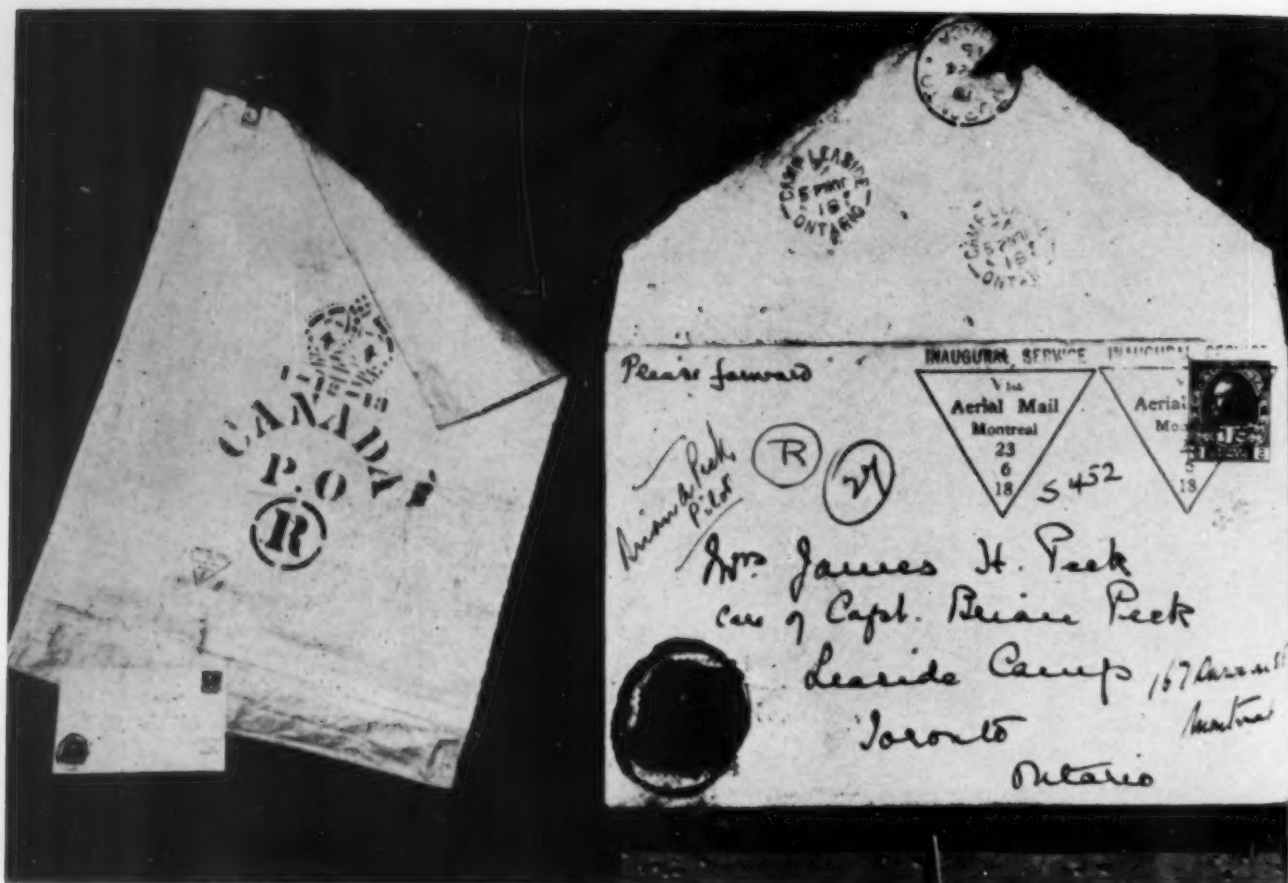 CANADA
P.O
R
CAMP LEASIDE
5 PM
18
ONTARIO
CAMP
5 PM
18
ONTARIO
Please forward
INAUGURAL SERVICE
Via
Aerial Mail
Montreal
23
6
18
INAUGURAL SERVICE
Aerial
Mo
18
Brian A Peck,
Pilot
R
27
S 452
Mrs James H. Peck
care of Capt. Brian Peck
Leaside Camp
Toronto
Ontario
167
Montreal